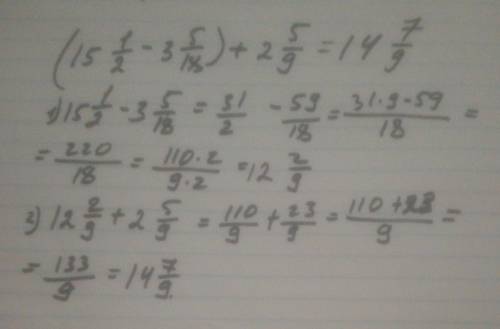 (15 1/2 - 3 5/18) + 2 5/9 = 14 7/9
1) 15 1/2 - 3 5/18 = 31/2 - 59/18 = (31·9-59)/18 =
= 220/18 = (110·2)/(9·2) = 12 2/9
2) 12 2/9 + 2 5/9 = 110/9 + 23/9 = (110+23)/9 =
= 133/9 = 14 7/9.